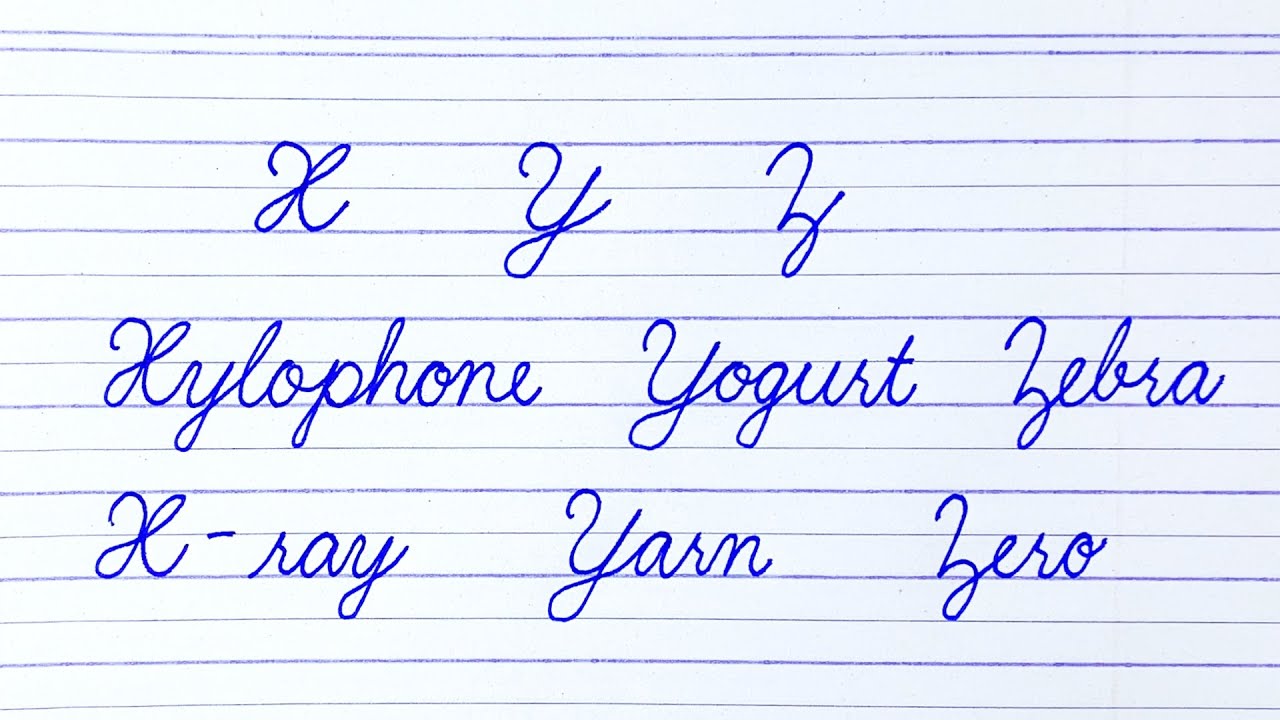 X Y Z
Xylophone Yogurt Zebra
X-ray Yarn Zero